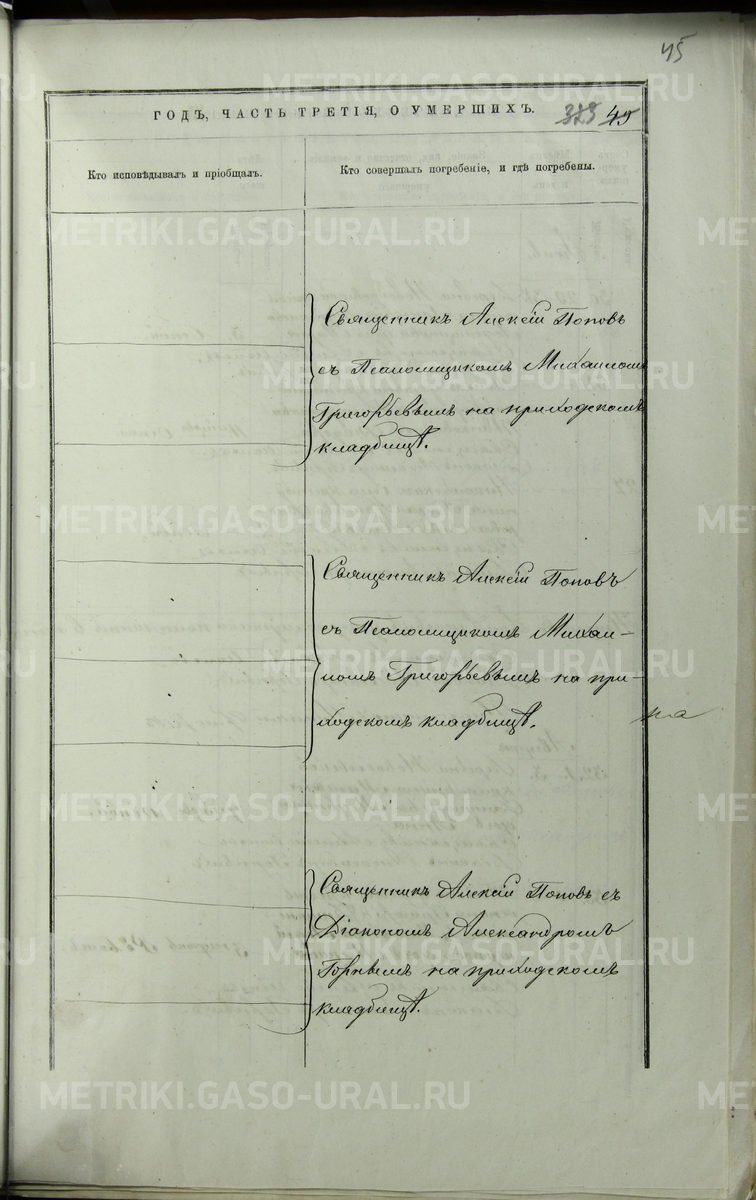 45
ГОДЪ, ЧАСТЬ ТРЕТІЯ, О УМЕРШИХЪ.
323 45
Кто исповѣдывалъ и пріобщалъ.
Кто совершалъ погребеніе, и гдѣ погребены.
Священникъ Алексій Поповъ
съ Псаломщикомъ Михаиломъ
Григорьевымъ на приходскомъ
кладбищѣ.
Священникъ Алексій Поповъ
съ Псаломщикомъ Михаи-
ломъ Григорьевымъ на при-
ходскомъ кладбищѣ.
на
Священникъ Алексій Поповъ съ
Діакономъ Александромъ
Горнымъ на приходскомъ
кладбищѣ.
METRIKI.GASO-URAL.RU